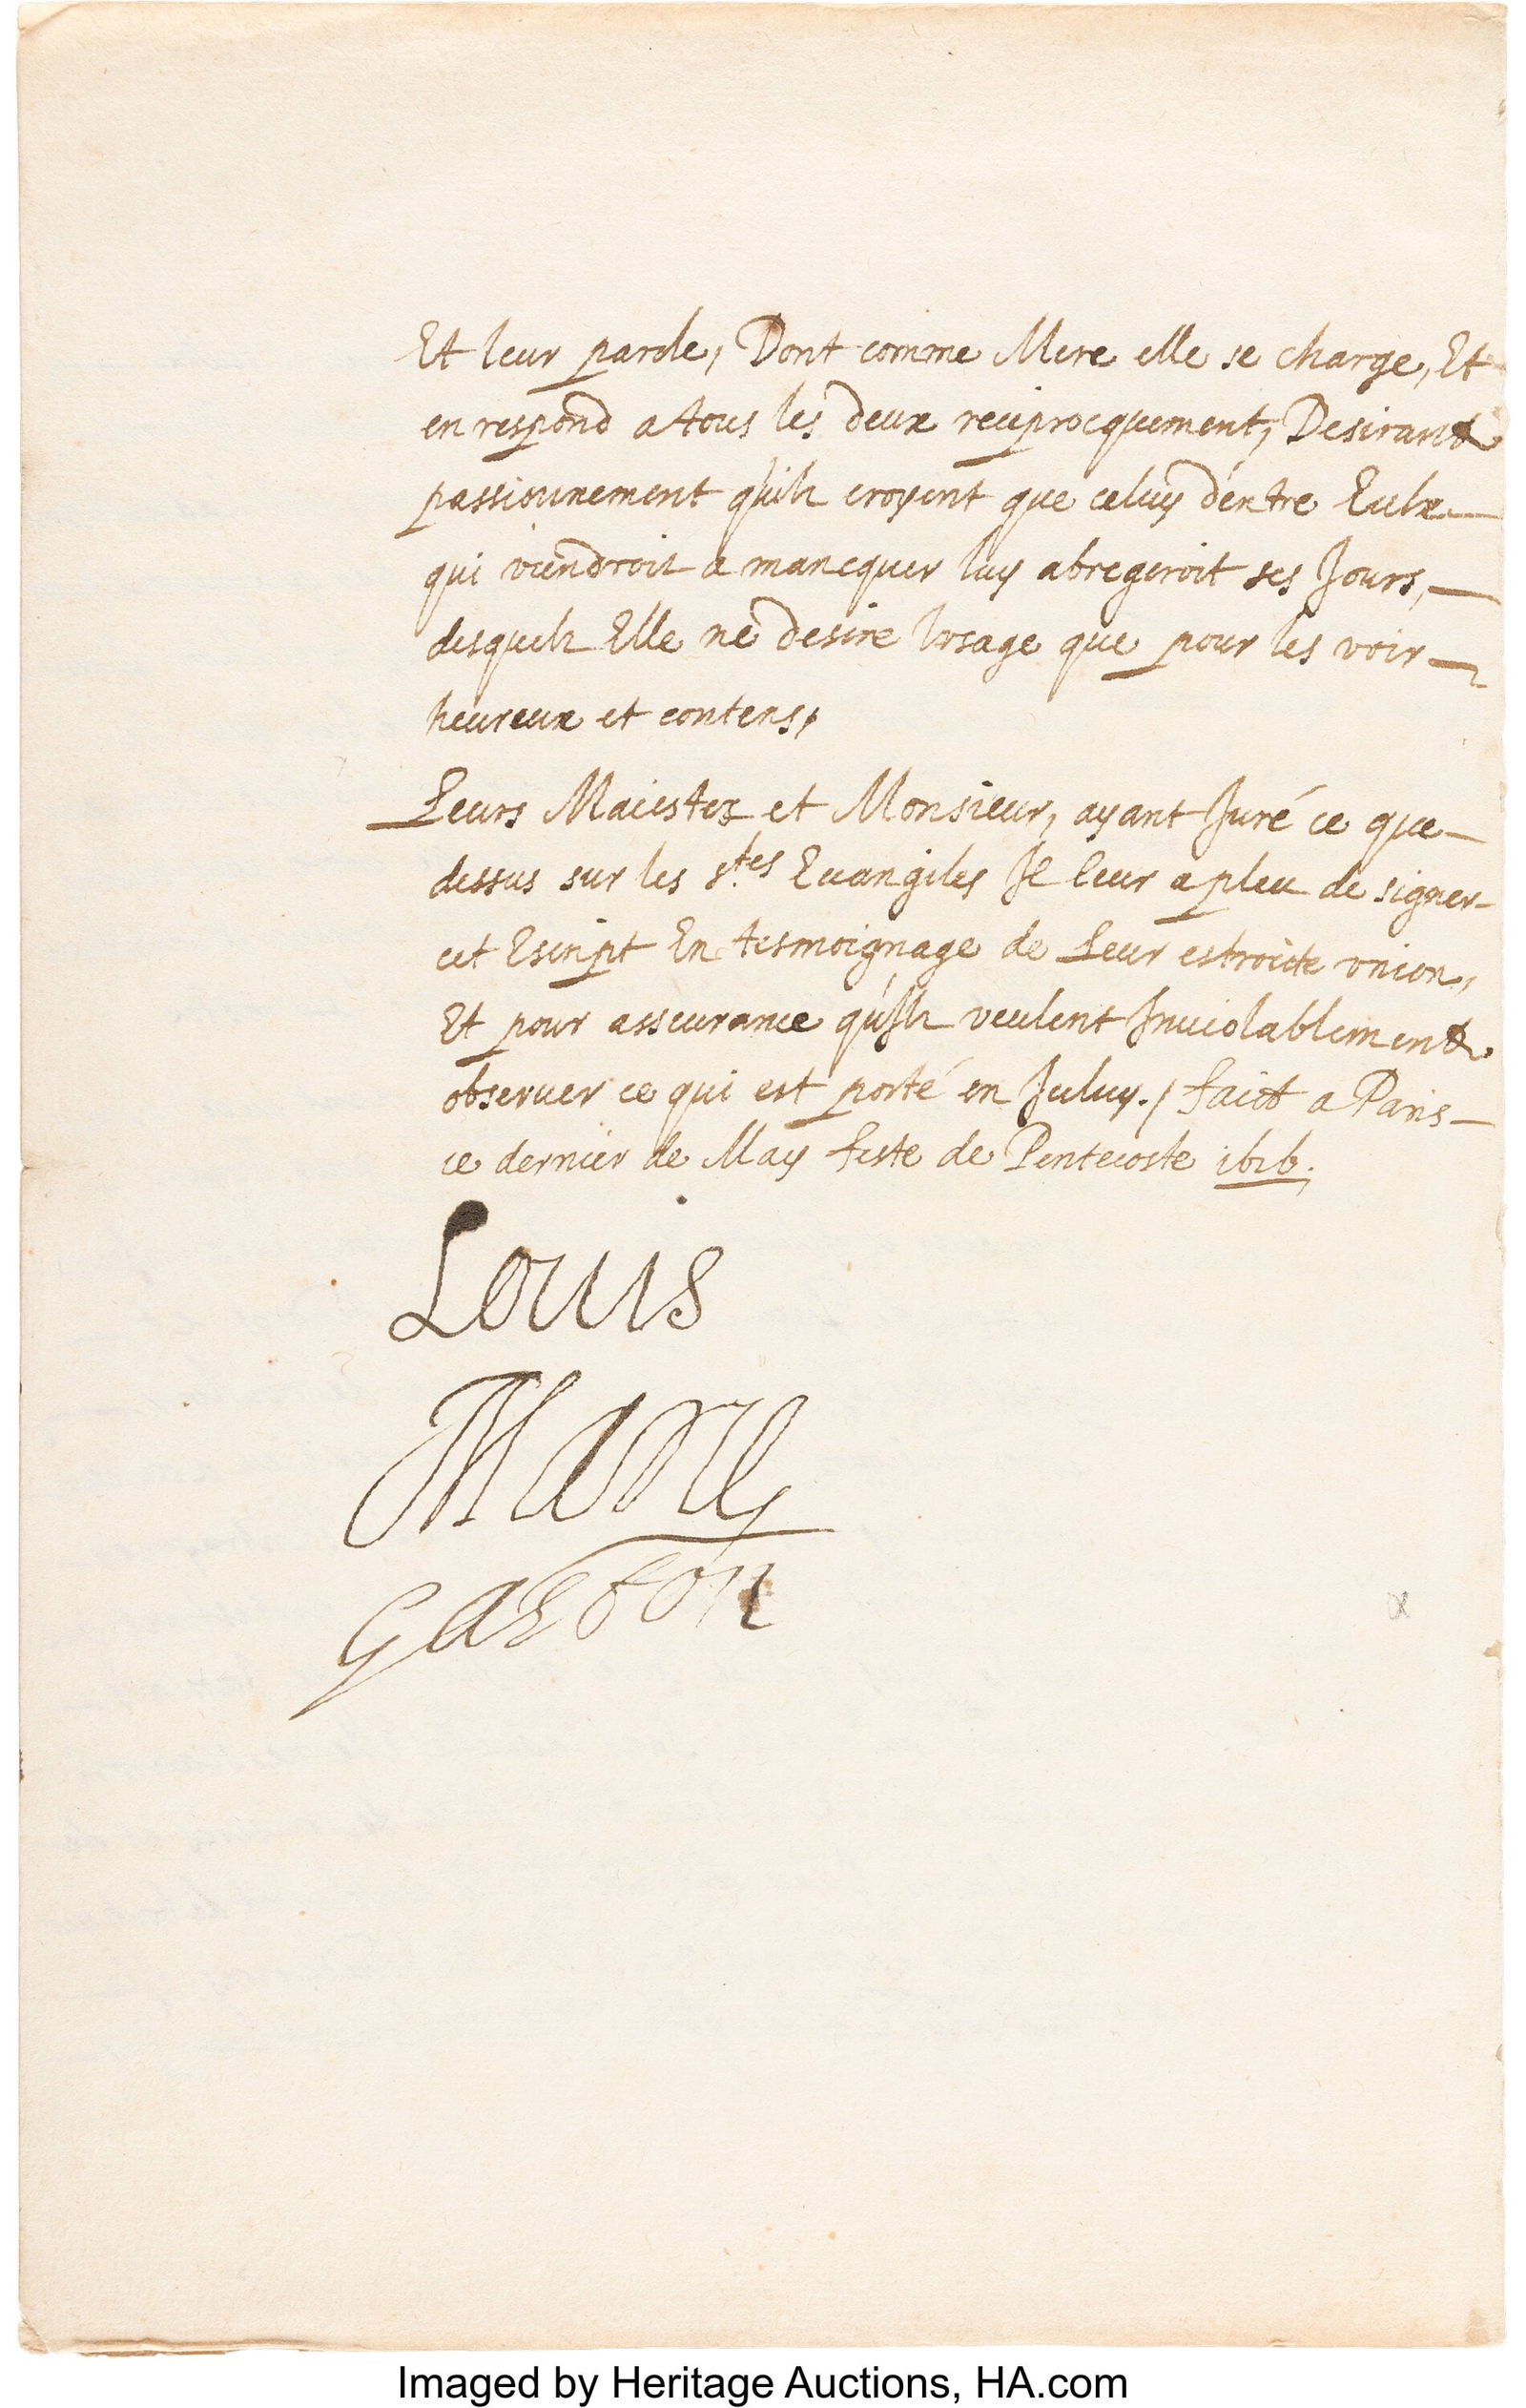 Et leur parole, Dont comme Mere elle se charge, Et
en respond a tous les deux reciprocquement, Desirant
passionnement qu'ilz croyent que celuy d'entre Eulx
qui viendroit a mancquer luy abregeroit ses Jours,
desquelz Elle ne desire l'vsage que pour les voir
heureux et contens,
Leurs Maiestez et Monsieur, ayant Juré ce que
dessus sur les s.tes Euangiles Jl leur a pleu de signer
cet Escript En tesmoignage de Leur estroicte vnion,
Et pour asseurance qu'Jlz veulent Jnuiolablement
obseruer ce qui est porté en Jceluy. / faict a Paris
ce dernier de May feste de Pentecoste 1626.
Louis
Marie
Gaston
Imaged by Heritage Auctions, HA.com